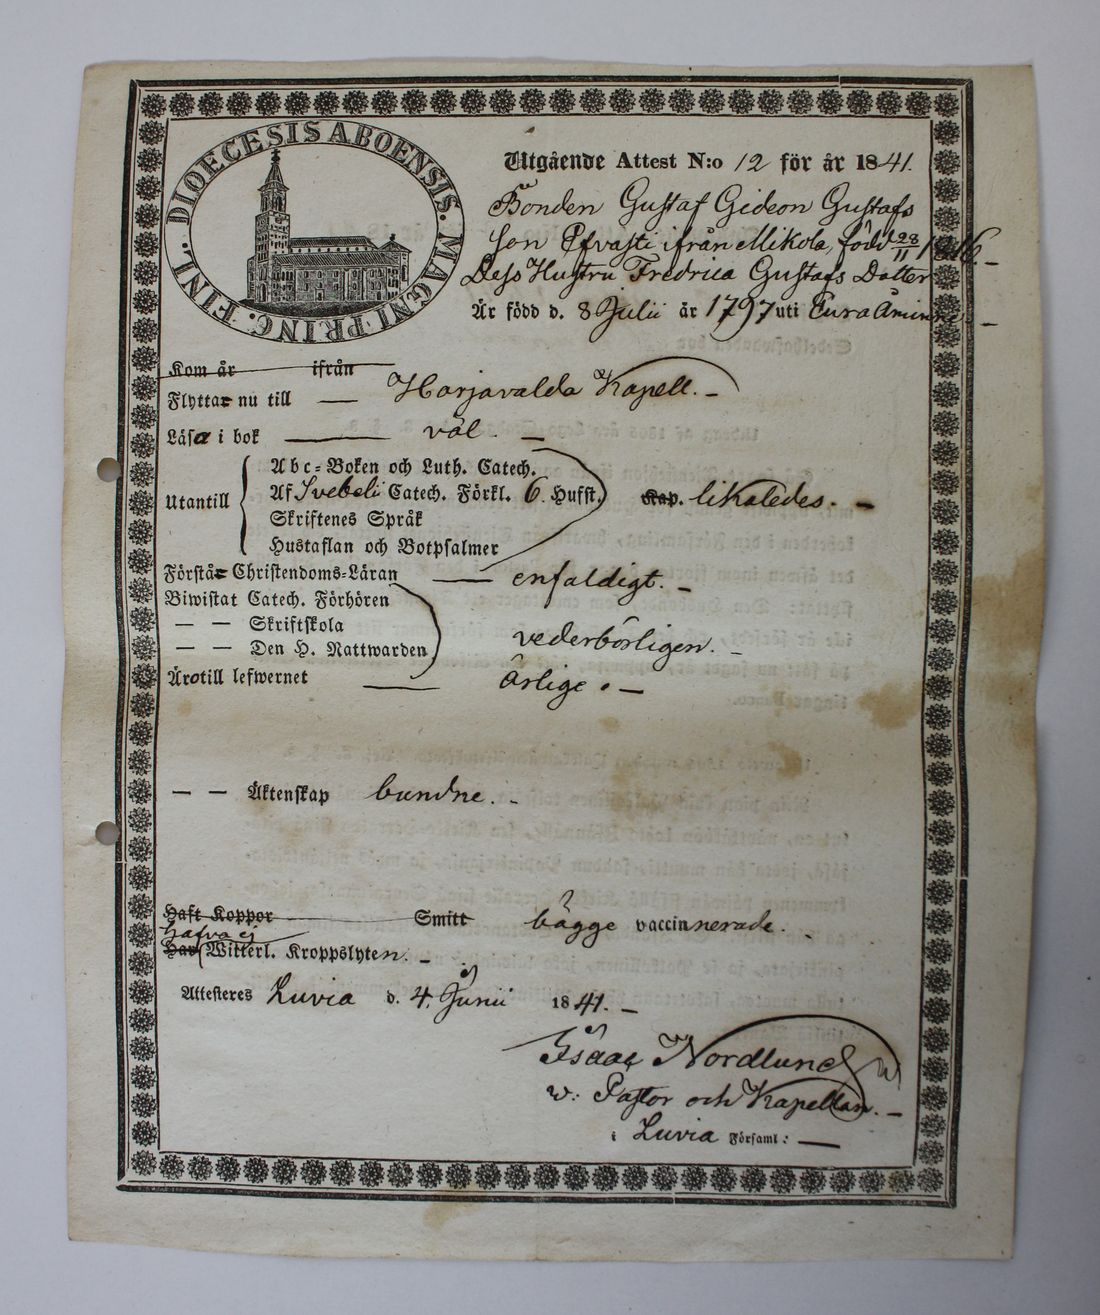 DIOECESIS ABOENSIS. MAGNI PRINC. FINL.
Utgående Attest N:o 12 för år 1841.
Bonden Gustaf Gideon Gustafs
son ifrån Mikola, född 28/11 1816. –
Dess Hustru Fredrica Gustafs Dotter
Är född d. 8 Julii år 1797 uti Eura Åminne –
Kom år ifrån
Flytta nu till — Harjavalda Kapell. –
Läsa i bok — väl. –
Abc-Boken och Luth. Catech.
Utantill Af Svebeli Catech. Förkl. 6. Hufst. Kap. likaledes. –
Skriftenes Språk
Hustaflan och Botpsalmer
Förstå Christendoms-Läran — enfaldigt. –
Biwistat Catech. Förhören
— — Skriftskola
— — Den H. Nattwarden vederbörligen. –
Äro till lefwernet — ärlige. –
— — Äktenskap bundne. –
Haft Koppor Smitt bägge vaccinnerade.
hafva ej
Har Witterl. Kroppslyten. –
Attesteres Luvia d. 4. Junii 1841. –
Isaac Nordlund
v: Pastor och Kapellan. –
i Luvia Församl: —